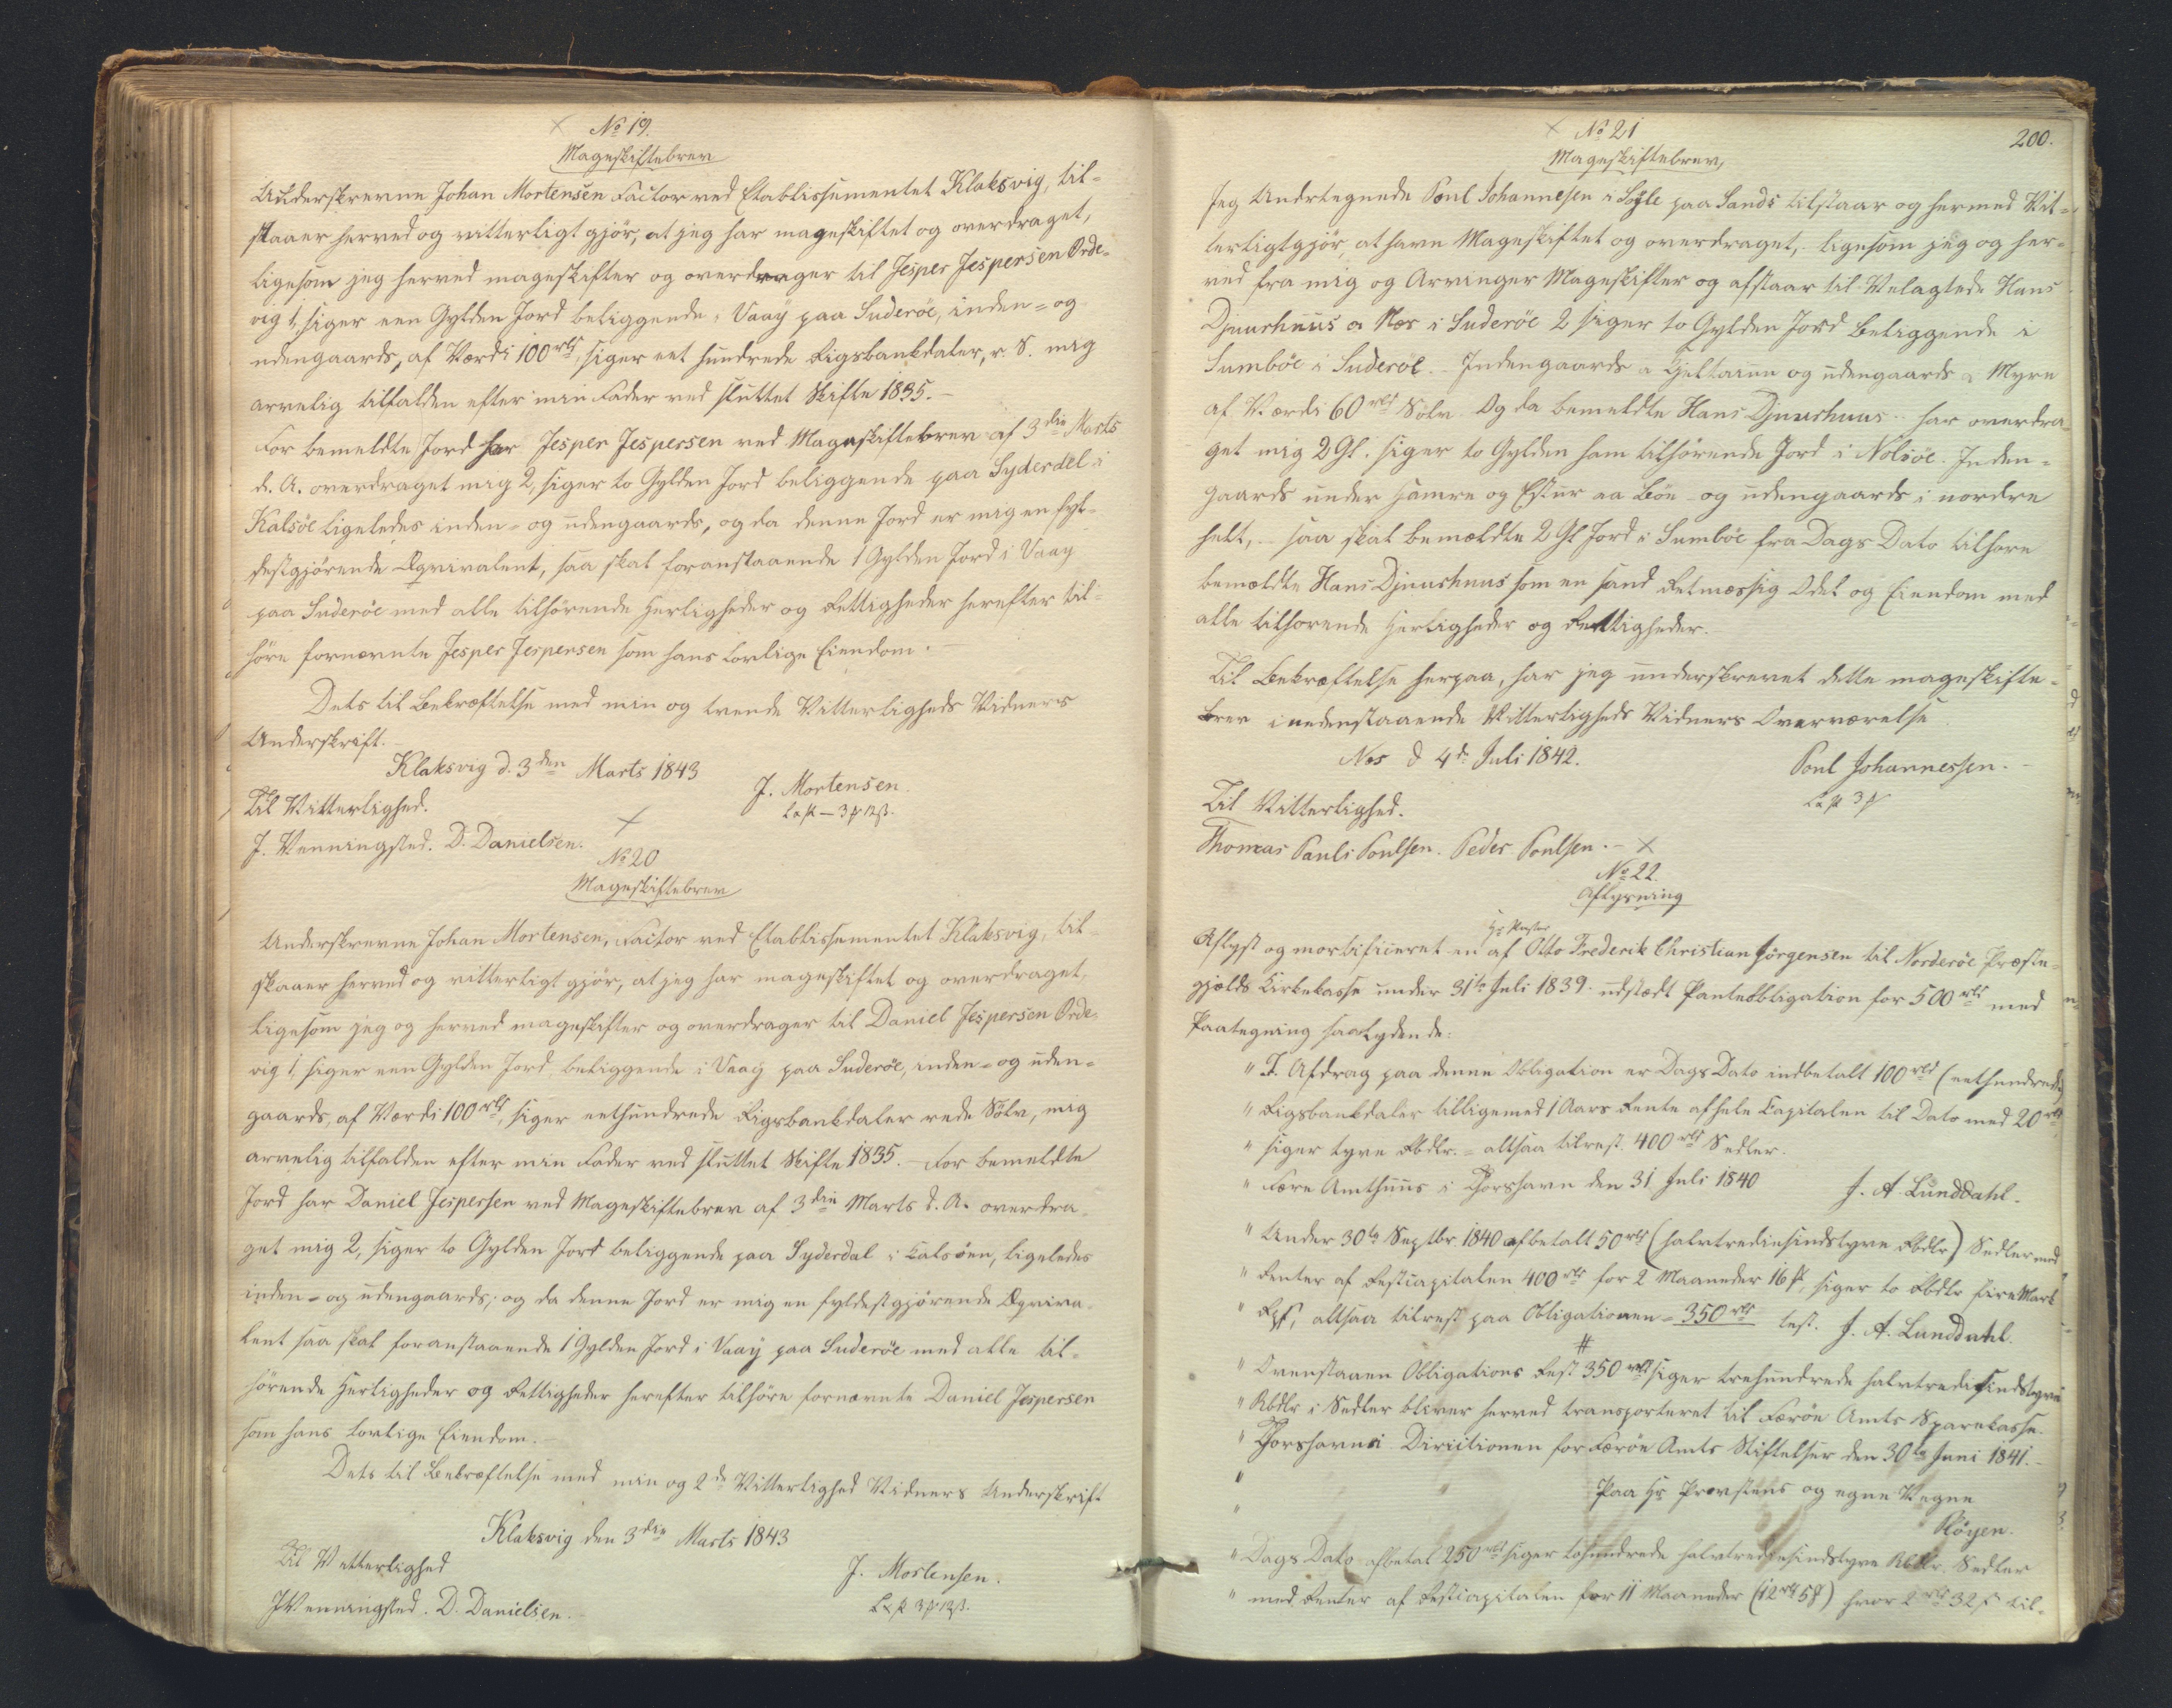 No 19.
Mageskiftebrev
Underskrevne Johan Mortensen Factor ved Etablissementet Klaksvig, til-
staaer herved og vitterligt gjør, at jeg har mageskiftet og overdraget,
ligesom jeg herved mageskifter og overdrager til Jesper Jespersen Orde-
vig 1, siger een Gylden Jord beliggende i Vaay paa Suderöe, inden- og
udengaards, af Værdi 100 rbd, siger eet hundrede Rigsbankdaler, r. S. mig
arvelig tilfalden efter min Fader ved sluttet Skifte 1835.-
For bemeldte Jord har Jesper Jespersen ved Mageskiftebrev af 3die Marts
d. A. overdraget mig 2, siger to Gylden Jord beliggende paa Syderdel i
Kalsöe ligeledes inden- og udengaards, og da denne Jord er mig en fyl-
destgjørende Eqvivalent, saa skal foranstaaende 1 Gylden Jord i Vaay
paa Suderöe med alle tilhörende Herligheder og Rettigheder herefter til-
höre fornævnte Jesper Jespersen som hans lovlige Eiendom.-
Dets til Bekræftelse med min og tvende Vitterligheds Vidners
Underskrift.
Klaksvig d. 3den Marts 1843
J. Mortensen.
Til Vitterlighed.
J. Wenningsted. D. Danielsen.
No 20
Mageskiftebrev
Underskrevne Johan Mortensen, Factor ved Etablissementet Klaksvig, til-
staaer herved og vitterligt gjör, at jeg har mageskiftet og overdraget,
ligesom jeg og herved mageskifter og overdrager til Daniel Jespersen Orde-
vig 1, siger een Gylden Jord beliggende i Vaay paa Suderöe, inden- og uden-
gaards, af Værdi 100 rbd, siger eethundrede Rigsbankdaler rede Sölv, mig
arvelig tilfalden efter min Fader ved sluttet Skifte 1835.- For bemeldte
Jord har Daniel Jespersen ved Mageskiftebrev af 3die Marts d. A. overdra-
get mig 2, siger to Gylden Jord beliggende paa Syderdal i Kalsöen, ligeledes
inden- og udengaards; og da denne Jord er mig en fyldestgjörende Eqviva-
lent saa skal foranstaaende 1 Gylden Jord i Vaay paa Suderöe med alle til-
hörende Herligheder og Rettigheder herefter tilhöre fornævnte Daniel Jespersen
som hans lovlige Eiendom.-
Dets til Bekræftelse med min og 2de Vitterlighed Vidners Underskrift
Klaksvig den 3die Marts 1843
Til Vetterlighed
J. Mortensen.
J Wenningsted. D. Danielsen.
200.
No 21
Mageskiftebrev,
Jeg Undertegnede Poul Johannesen i Søyle paa Sands tilstaar og hermed Vit-
terligtgjör, at have Mageskiftet og overdraget,- ligesom jeg og her-
ved fra mig og Arvinger Mageskifter og afstaar til Velagtede Hans
Djuurhuus a Næs i Suderöe 2 siger to Gylden Jord beliggende i
Sumböe i Suderöe.- Indengaards a Hjeltarun og udengaards i Myre
af Værdi 60 rbd Sölv. Og da bemeldte Hans Djuurhuus har overdra-
get mig 2 Gl. siger to Gylden ham tilhörende Jord i Nolsöe. Inden-
gaards under Hamre og Estur aa Böe og udengaards i nordre
helt,- saa skal bemældte 2 Gl Jord i Sumböe fra Dags Dato tilhore
bemældte Hans Djuurhuus som en sand Retmæssig Odel og Eiendom med
alle tilhorende Herligheder og Rettigheder.
Til Bekræftelse herpaa, har jeg underskrevet dette mageskifte-
brev i nedenstaaende Vitterligheds Vidners Overværelse
Næs d 4de Juli 1842.
Poul Johannessen.-
Til Vitterlighed.
Thomas Pauli Poulsen. Peder Poulsen.-
No 22.
Aflysning
Hr Pastor
Aflyst og mortificeret en af Otto Frederik Christian Jörgensen til Norderöe Præste-
gjælds Kirkekasse under 31te Juli 1839. udstædt Panteobligation for 500 rbd med
Paategning saalydende:
" I. Afdrag paa denne Obligation er Dags Dato indbetalt 100 rbd (eethundrede)
" Rigsbankdaler tilligemed 1 Aars Rente af hele Capitalen til Dato med 20 rbd
" siger tyve Rbdlr.- altsaa tilrest 400 rbd Sedler.
" Færø Amthuus i Thorshavn den 31 Juli 1840
J. A. Lunddahl.
" Under 30te Septbr. 1840 afbetalt 50 rbd (halvtrediesindstyve Rbdlr) Sedler med
" Renter af Restcapitalen 400 rbd for 2 Maaneder 16 siger to Rbdlr fire Mark
" altsaa tilrest paa Obligationen = 350 rbd test. J. A. Lunddahl.
" Ovenstaaen Obligations Rest 350 rbd siger trehundrede halvtrediesindstyve
" Rbdlr i Sedler bliver herved transporteret til Færöe Amts Sparekasse.
" Thorshavn i Directionen for Færöe Amts Stiftelser den 30te Juni 1841.-
" Paa Hr Provstens og egne Vegne
" Plöyen.
" Dags Dato afbetal 250 rbd siger tohundrede halvtrediesindstyve Rbdlr. Sedler
" med Renter af Restcapitalen for 11 Maaneder (12 rbd 5) hvor 2 rbd 32 til-